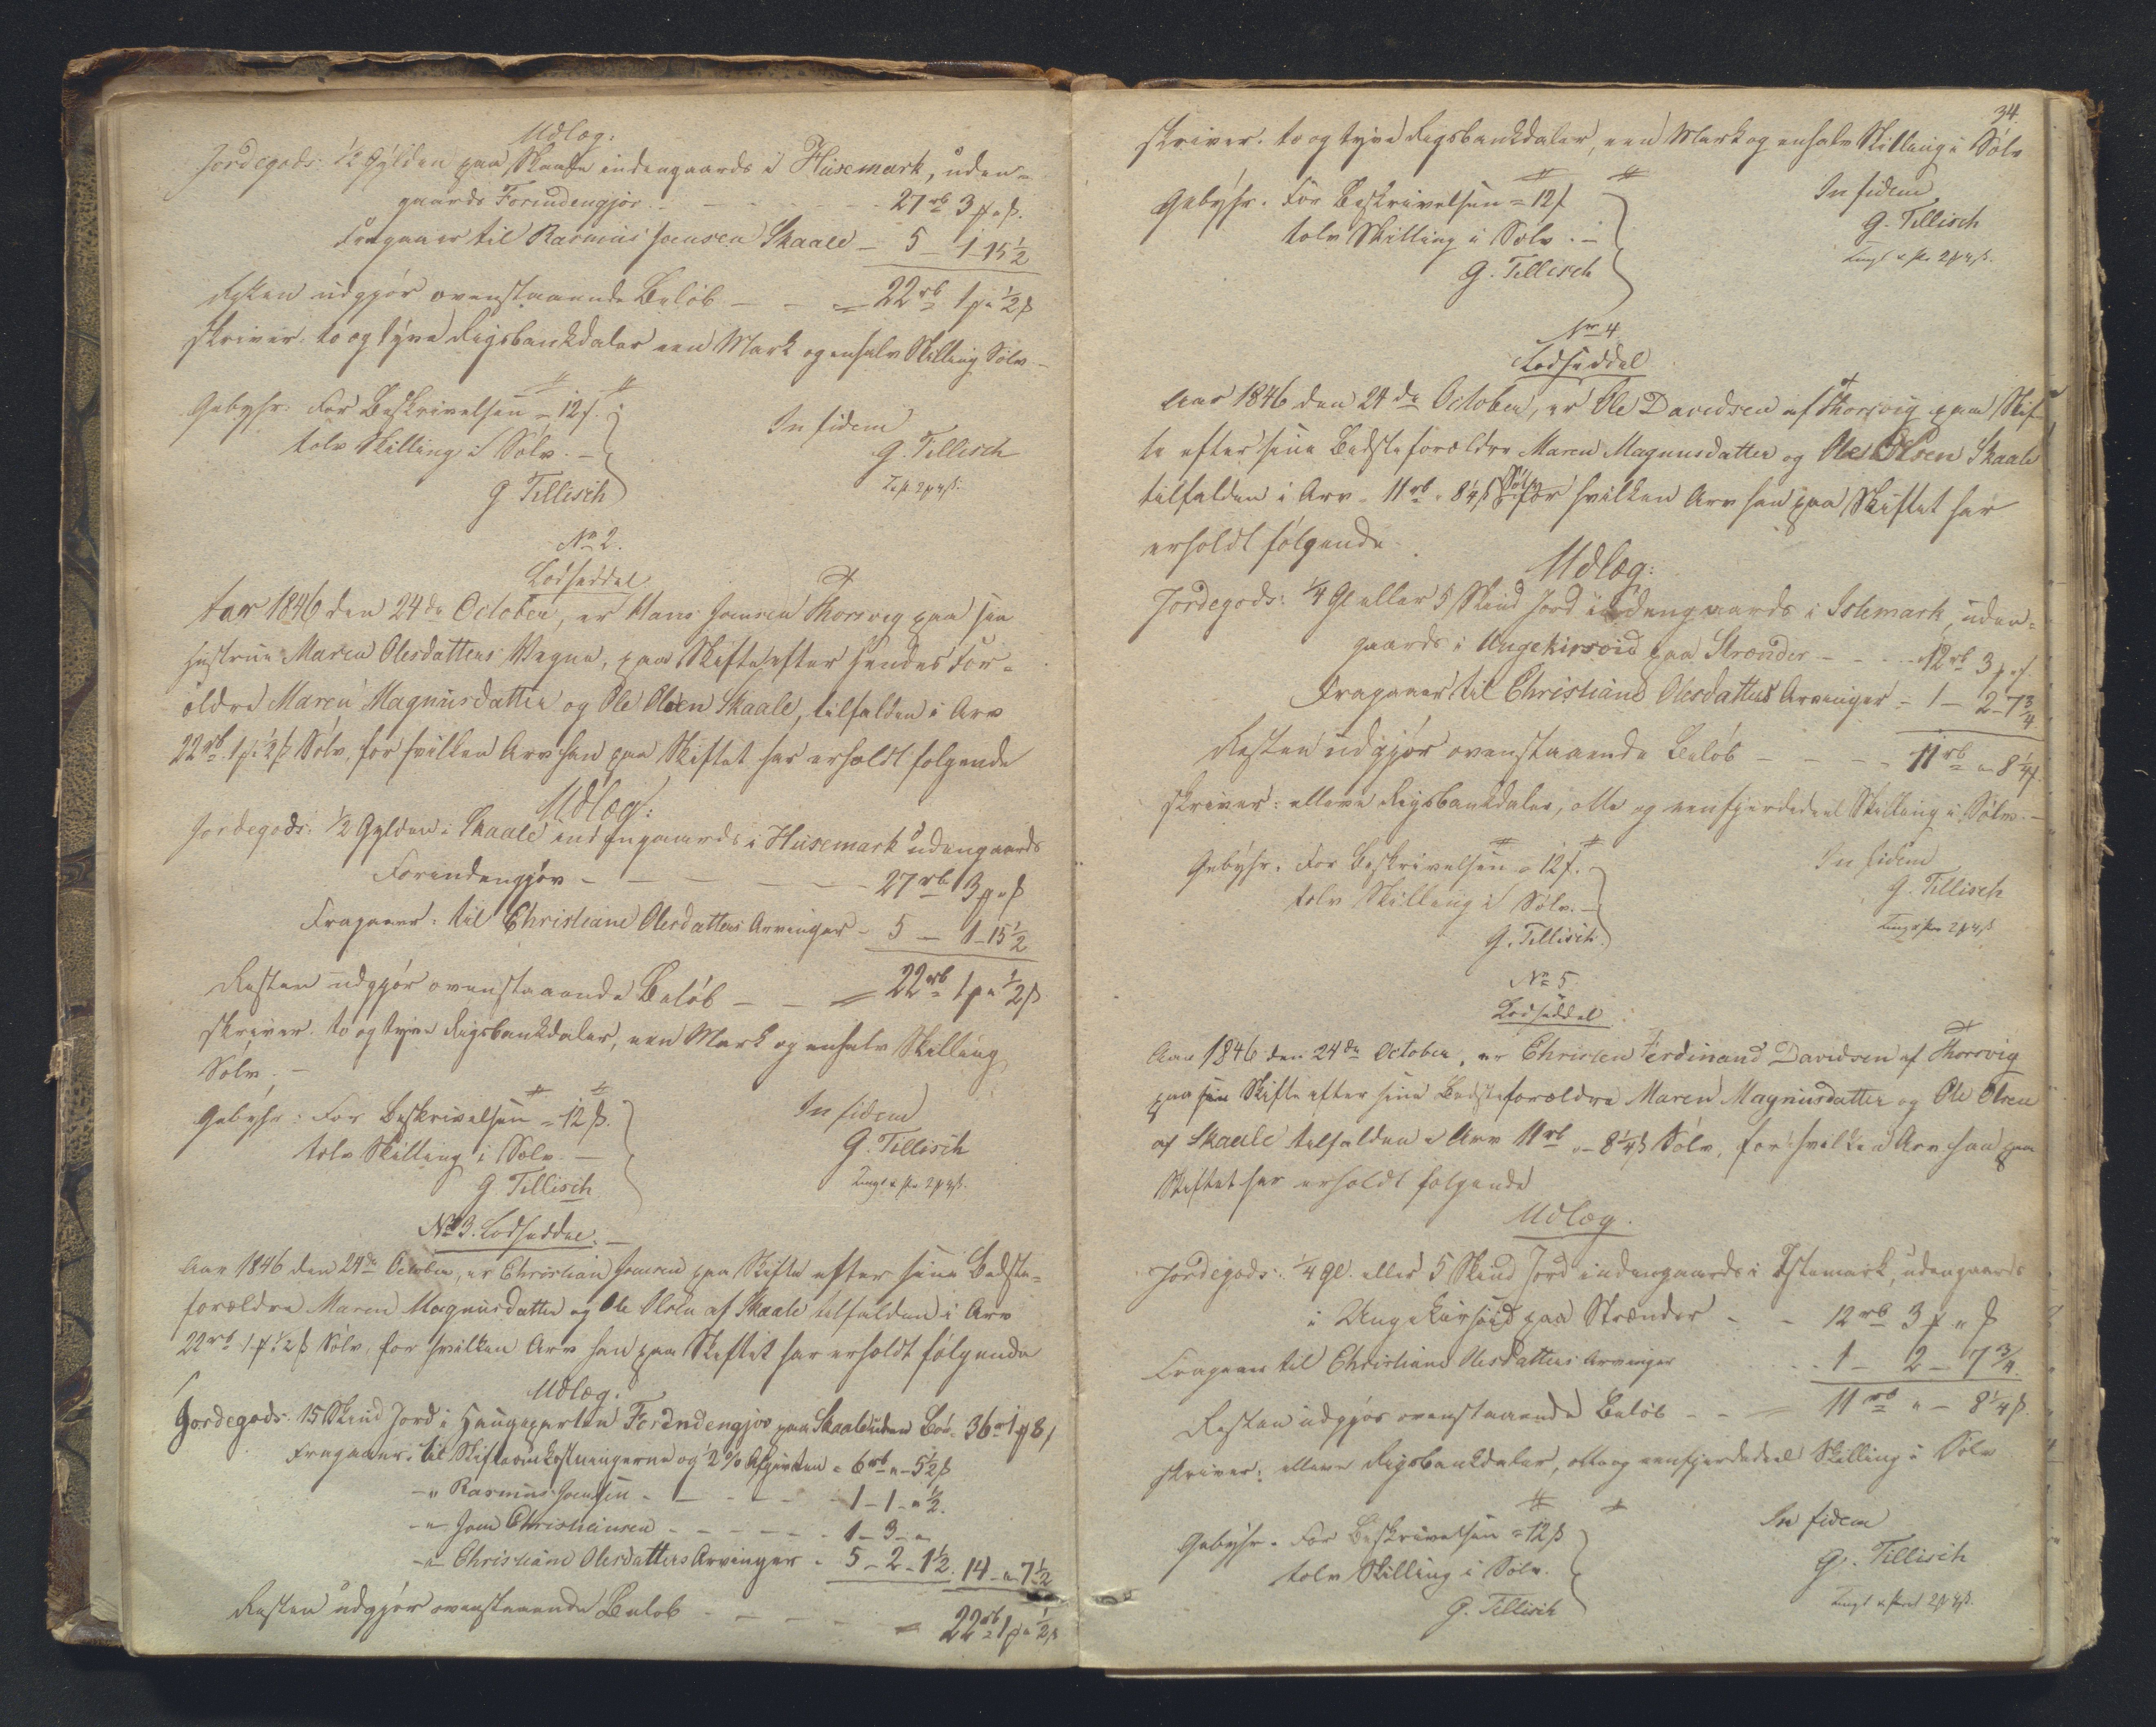 Udlæg:
Jordegods: ½ Gylden paa Skaale indengaards i Húsemark, uden-
gaards Forindengjov - - - 27 rb 3 ℳ „ ß.
Fragaaer til Rasmus Joensen Skaale - 5 - 1 - 15½
Resten udgjør ovenstaaende Beløb - - = 22 rb 1 ℳ „ ½ ß
skriver to og tyve Rigsbankdaler een Mark og enhalv Skilling Sølv -
Gebyhr. For Beskrivelsen = 12 ß.
tolv Skilling i Sølv. -
G Tillisch
In fidem
G. Tillisch
No 2.
Lodseddel
Aar 1846 den 24de October, er Hans Joensen Thorsvig paa sin
Hustrue Maren Olesdatters Vegne, paa Skifte efter hendes For-
ældre Maren Magnusdatter og Ole Olsen Skaale, tilfalden i Arv
22 rb 1 ℳ ½ ß Sølv, for hvilken Arv han paa Skiftet har erholdt følgende
Udlæg:
Jordegods: ½ Gylden i Skaale indengaards i Húsemark udengaards
Forindengjov - - - 27 rb 3 ℳ „ ß
Fragaaer: til Christiane Olesdatters Arvinger - 5 - 1 - 15½
Resten udgjør ovenstaaende Beløb - - = 22 rb 1 ℳ „ ½ ß
skriver to og tyve Rigsbankdaler, een Mark og enhalv Skilling
Sølv. -
Gebyhr: For Beskrivelsen = 12 ß.
tolv Skilling i Sølv. -
G Tillisch
In fidem
G. Tillisch
No 3. Lodseddel. -
Aar 1846 den 24de October, er Christian Joensen paa Skifte efter sine Bedste-
forældre Maren Magnusdatter og Ole Olsen af Skaale tilfalden i Arv
22 rb 1 ℳ ½ ß Sølv, for hvilken Arv han paa Skiftet har erholdt følgende
Udlæg.
Jordegods. 15 Skind Jord i Haugeparten Forindengjov paa Skaale uden 36 - 1 ℳ 8 ß
Fragaaer: til Skifteomkostningerne og 2 % Afgivten = 6 rb „ - 5½ ß
- „ Rasmus Joensen - - - 1 - 1 - „ ½.
- „ - Joen Christiansen - - - 1 - 3 - „ -
- „ - Christiane Olesdatters Arvinger = 5 - 2 - 1½. 14 - „ - 7½
Resten udgjør ovenstaaende Beløb - - - = 22 rb 1 ℳ „ ½ ß
34.
skriver. to og tyve Rigsbankdaler, een Mark og enhalv Skilling i Sølv
Gebyhr. For Beskrivelsen = 12 ß
tolv Skilling i Sølv. -
G. Tillisch
In fidem
G. Tillisch
No 4
Lodseddel
Aar 1846 den 24de October, er Ole Davidsen af Thorsvig paa Skif-
te efter sine Bedsteforældre Maren Magnusdatter og Ole Olsen Skaale
tilfalden i Arv - 11 rb „ 8¼ ß Sølv for hvilken Arv han paa Skiftet har
erholdt følgende
Udlæg:
Jordegods: ¼ Gl eller 5 Skind Jord indengaards i Istemark, uden-
gaards i paa Strænder - - - 12 rb 3 ℳ „ ß
Fragaaer til Christiane Olesdatters Arvinger - 1 - 2 - 7¾
Resten udgjør ovenstaaende Beløb - - - 11 rb „ - 8¼ ß.
skriver: elleve Rigsbankdaler, otte og eenfjerdedeel Skilling i Sølv. -
Gebyhr. For Beskrivelsen = 12 ß.
tolv Skilling i Sølv. -
G. Tillisch.
In fidem
G. Tillisch
No 5.
Lodseddel
Aar 1846 den 24de October, er Christen Ferdinand Davidsen af Thorsvig
paa sin Skifte efter sine Bedsteforældre Maren Magnusdatter og Ole Olsen
af Skaale tilfalden i Arv 11 rb „ - 8¼ ß Sølv, for hvilken Arv han paa
Skiftet har erholdt følgende
Udlæg.
Jordegods: ¼ Gl. eller 5 Skind Jord indengaards i Istemark, udengaards
i paa Strænder - - 12 rb 3 ℳ „ ß
Fragaaer til Christiane Olesdatters Arvinger - - 1 - 2 - 7¾.
Resten udgjør ovenstaaende Beløb - - = 11 rb „ - 8¼ ß.
skriver: elleve Rigsbankdaler, otte og eenfjerdedeel Skilling i Sølv
Gebyhr. For Beskrivelsen = 12 ß
tolv Skilling i Sølv.
G. Tillisch
In fidem
G. Tillisch